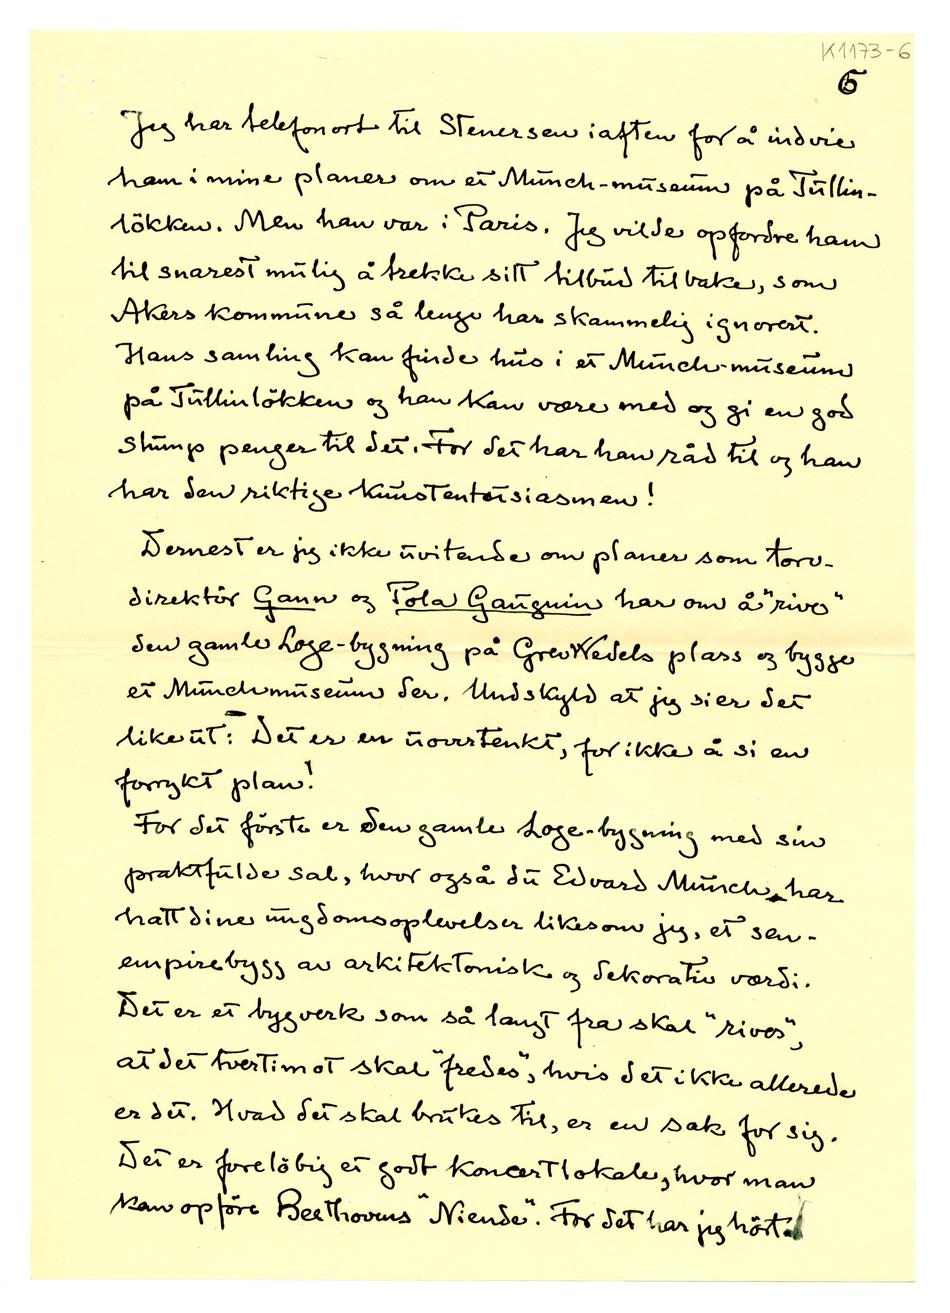 K1173-6
6
Jeg har telefonort til Stenersen iaften for å indvie
ham i mine planer om et Munch-museum på Tullin-
lökken. Men han var i Paris. Jeg vilde opfordre ham
til snarest mulig å trekke sitt tilbud tilbake, som
Akers kommune så lenge har skammelig ignorert.
Hans samling kan finde hus i et Munch-museum
på Tullinlökken og han kan være med og gi en god
stump penger til det. For det har han råd til og han
har den riktige kunstentusiasmen!
Dernest er jeg ikke uvitende om planer som torv-
direktör Gann og Pola Gauguin har om å "rive"
den gamle Loge-bygning på Grev Wedels plass og bygge
et Munchmuseum der. Undskyld at jeg sier det
like ut: Det er en uovertenkt, for ikke å si en
forrykt plan!
For det förste er den gamle Loge-bygning med sin
praktfulde sal, hvor også du Edvard Munch har
hatt dine ungdomsoplevelser likesom jeg, et sen-
empirebygg av arkitektonisk og dekorativ værdi.
Det er et bygverk som så langt fra skal "rives",
at det tvertimot skal "fredes", hvis det ikke allerede
er det. Hvad det skal brukes til, er en sak for sig.
Det er forelöbig et godt koncertlokale, hvor man
kan opföre Beethovens "Niende". For det har jeg hört.